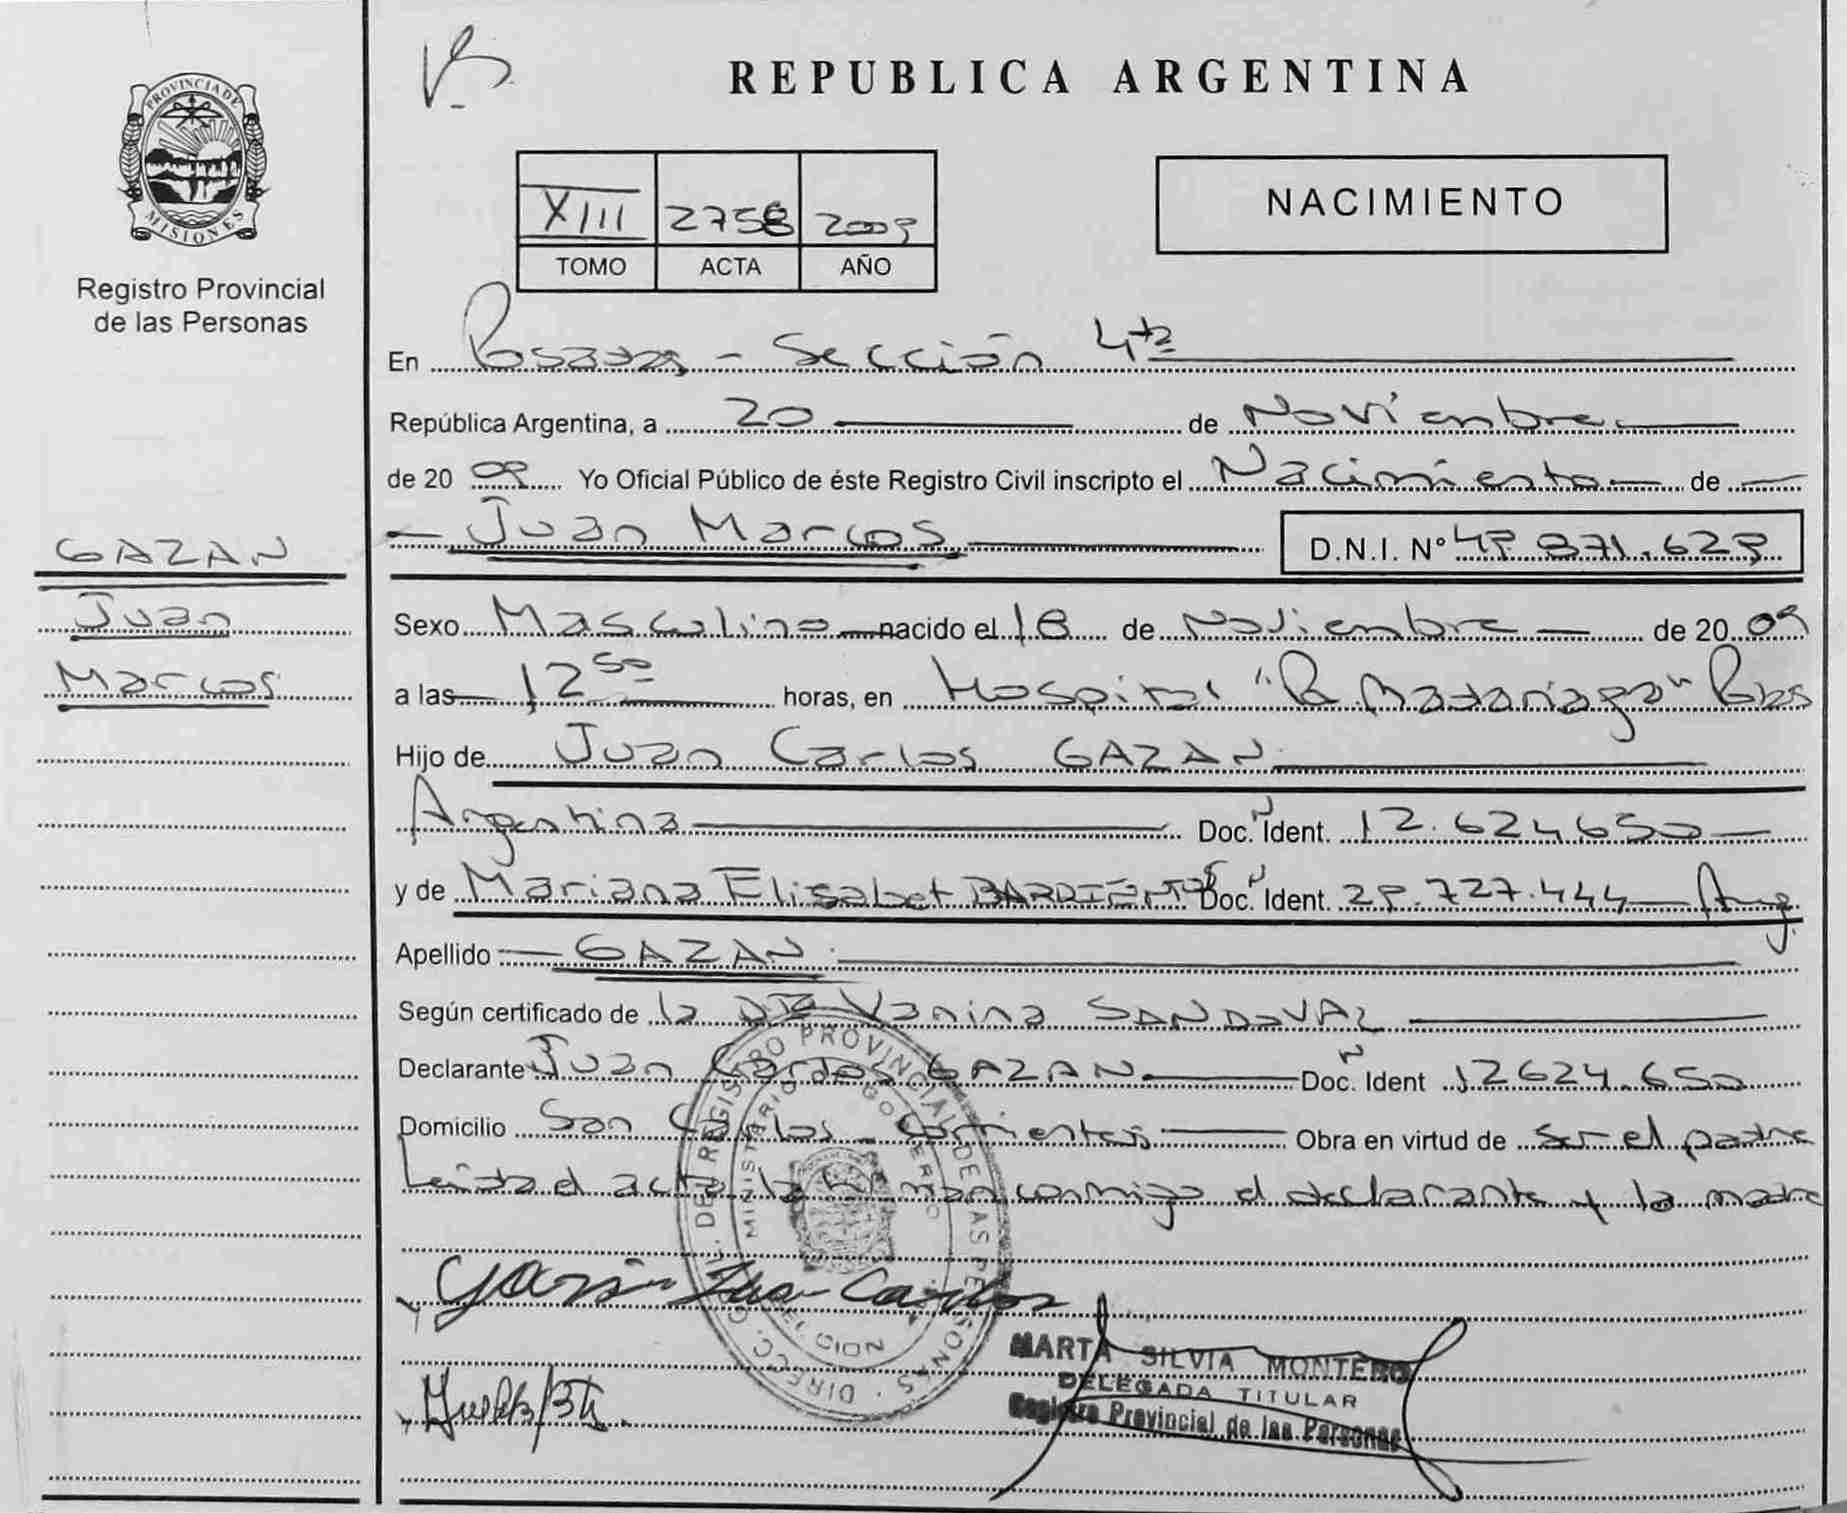 PROVINCIA DE
MISIONES
Registro Provincial
de las Personas
GAZAN
Juan
Marcos
REPUBLICA ARGENTINA
XIII 2758 2009
TOMO ACTA AÑO
NACIMIENTO
En Posadas - Sección 4ta
República Argentina, a 20 de Noviembre
de 2009 Yo Oficial Público de éste Registro Civil inscripto el Nacimiento de
Juan Marcos D.N.I. Nº 49.871.629
Sexo Masculino nacido el 18 de Noviembre de 2009
a las 12 50 horas, en Hospital "R Madariaga" Pdas
Hijo de Juan Carlos GAZAN
Argentina Doc. N Ident. 12.624.650
y de Mariana Elisabet BARRIENTOS Doc. N Ident. 29.727.444 Arg.
Apellido GAZAN
Según certificado de la Dra Vanina SANDOVAL
Declarante Juan Carlos GAZAN Doc. N Ident 12624.650
Domicilio San Carlos - Corrientes Obra en virtud de ser el padre
Leída el acta la firman conmigo el declarante y la madre
DIRECC. GRAL. DEL REGISTRO PROVINCIAL DE LAS PERSONAS
MINISTERIO DE GOBIERNO
Juan Carlos
MARTA SILVIA MONTERO
DELEGADA TITULAR
Registro Provincial de las Personas